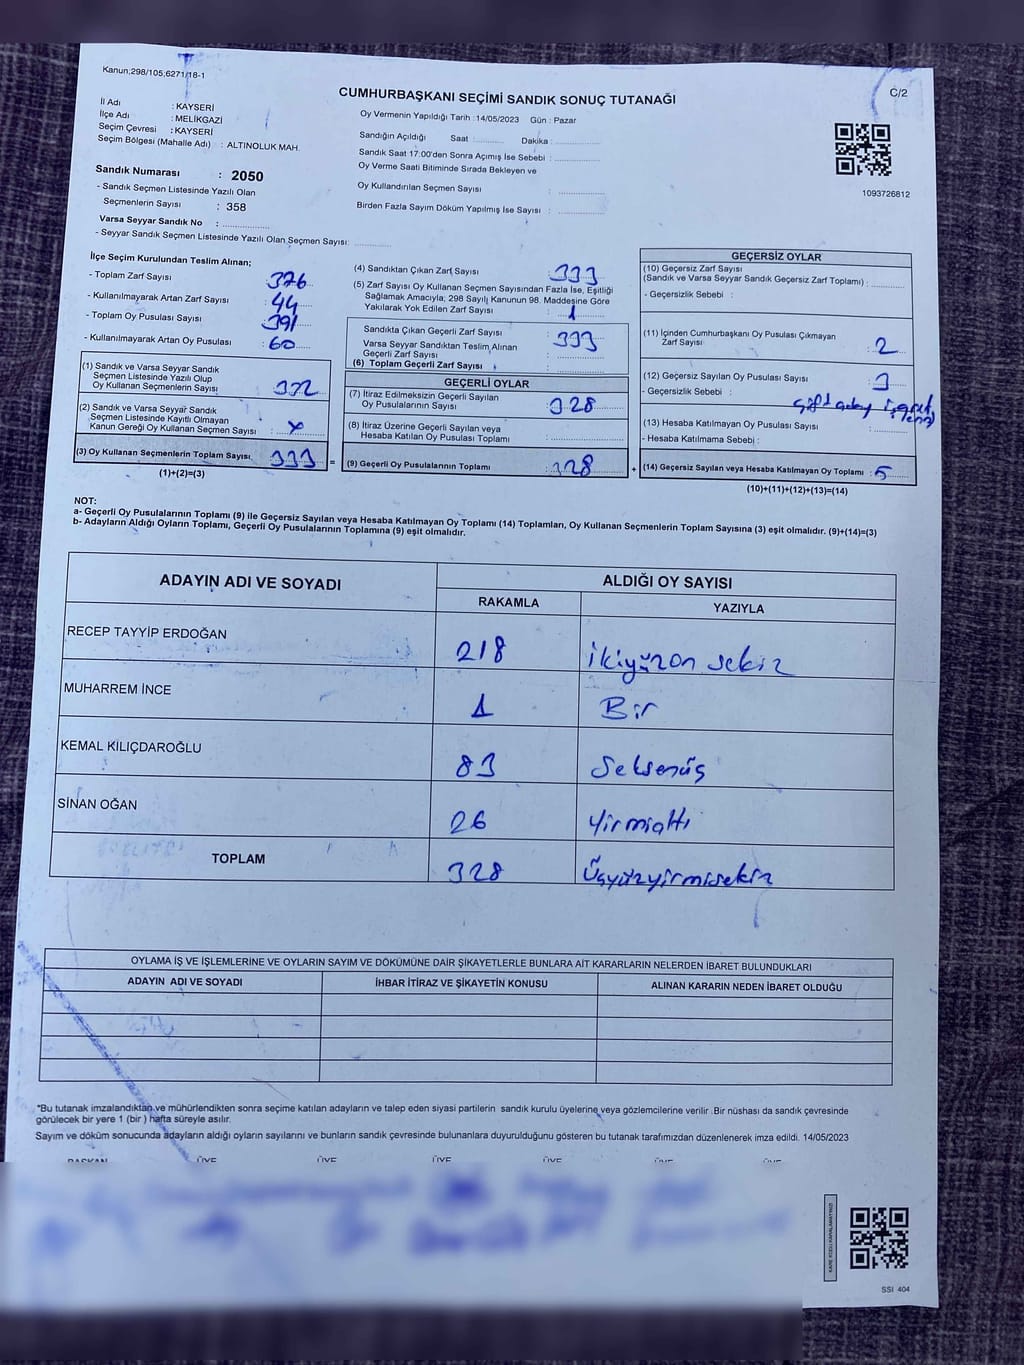 Kanun;298/105;6271/18-1
C/2
CUMHURBAŞKANI SEÇİMİ SANDIK SONUÇ TUTANAĞI
İl Adı : KAYSERİ
İlçe Adı : MELİKGAZİ
Seçim Çevresi : KAYSERİ
Seçim Bölgesi (Mahalle Adı) : ALTINOLUK MAH.
Sandık Numarası : 2050
- Sandık Seçmen Listesinde Yazılı Olan
Seçmenlerin Sayısı : 358
Varsa Seyyar Sandık No :
- Seyyar Sandık Seçmen Listesinde Yazılı Olan Seçmen Sayısı:
Oy Vermenin Yapıldığı Tarih : 14/05/2023 Gün : Pazar
Sandığın Açıldığı Saat : Dakika :
Sandık Saat 17:00'den Sonra Açımış İse Sebebi :
Oy Verme Saati Bitiminde Sırada Bekleyen ve
Oy Kullandırılan Seçmen Sayısı :
Birden Fazla Sayım Döküm Yapılmış İse Sayısı :
1093726812
İlçe Seçim Kurulundan Teslim Alınan;
- Toplam Zarf Sayısı : 376
- Kullanılmayarak Artan Zarf Sayısı : 44
- Toplam Oy Pusulası Sayısı : 391
- Kullanılmayarak Artan Oy Pusulası : 60
(1) Sandık ve Varsa Seyyar Sandık
Seçmen Listesinde Yazılı Olup
Oy Kullanan Seçmenlerin Sayısı : 332
(2) Sandık ve Varsa Seyyar Sandık
Seçmen Listesinde Kayıtlı Olmayan
Kanun Gereği Oy Kullanan Seçmen Sayısı :
(3) Oy Kullanan Seçmenlerin Toplam Sayısı : 333 =
(1)+(2)=(3)
(4) Sandıktan Çıkan Zarf Sayısı : 333
(5) Zarf Sayısı Oy Kullanan Seçmen Sayısından Fazla İse, Eşitliği
Sağlamak Amacıyla; 298 Sayılı Kanunun 98. Maddesine Göre
Yakılarak Yok Edilen Zarf Sayısı : 1
Sandıkta Çıkan Geçerli Zarf Sayısı : 333
Varsa Seyyar Sandıktan Teslim Alınan
Geçerli Zarf Sayısı :
(6) Toplam Geçerli Zarf Sayısı :
GEÇERLİ OYLAR
(7) İtiraz Edilmeksizin Geçerli Sayılan
Oy Pusulalarının Sayısı : 328
(8) İtiraz Üzerine Geçerli Sayılan veya
Hesaba Katılan Oy Pusulası Toplamı :
(9) Geçerli Oy Pusulalarının Toplamı : 328 +
GEÇERSİZ OYLAR
(10) Geçersiz Zarf Sayısı
(Sandık ve Varsa Seyyar Sandık Geçersiz Zarf Toplamı) :
- Geçersizlik Sebebi :
(11) İçinden Cumhurbaşkanı Oy Pusulası Çıkmayan
Zarf Sayısı : 2
(12) Geçersiz Sayılan Oy Pusulası Sayısı : 3
- Geçersizlik Sebebi :
(13) Hesaba Katılmayan Oy Pusulası Sayısı :
- Hesaba Katılmama Sebebi :
(14) Geçersiz Sayılan veya Hesaba Katılmayan Oy Toplamı : 5
(10)+(11)+(12)+(13)=(14)
NOT:
a- Geçerli Oy Pusulalarının Toplamı (9) ile Geçersiz Sayılan veya Hesaba Katılmayan Oy Toplamı (14) Toplamları, Oy Kullanan Seçmenlerin Toplam Sayısına (3) eşit olmalıdır. (9)+(14)=(3)
b- Adayların Aldığı Oyların Toplamı, Geçerli Oy Pusulalarının Toplamına (9) eşit olmalıdır.
ADAYIN ADI VE SOYADI ALDIĞI OY SAYISI
RAKAMLA YAZIYLA
RECEP TAYYİP ERDOĞAN 218 ikiyüzon sekiz
MUHARREM İNCE 1 Bir
KEMAL KILIÇDAROĞLU 83 Seksenüç
SİNAN OĞAN 26 Yirmialtı
TOPLAM 328 Üçyüzyirmisekiz
OYLAMA İŞ VE İŞLEMLERİNE VE OYLARIN SAYIM VE DÖKÜMÜNE DAİR ŞİKAYETLERLE BUNLARA AİT KARARLARIN NELERDEN İBARET BULUNDUKLARI
ADAYIN ADI VE SOYADI İHBAR İTİRAZ VE ŞİKAYETİN KONUSU ALINAN KARARIN NEDEN İBARET OLDUĞU
*Bu tutanak imzalandıktan ve mühürlendikten sonra seçime katılan adayların ve talep eden siyasi partilerin sandık kurulu üyelerine veya gözlemcilerine verilir. Bir nüshası da sandık çevresinde
görülecek bir yere 1 (bir ) hafta süreyle asılır.
Sayım ve döküm sonucunda adayların aldığı oyların sayılarını ve bunların sandık çevresinde bulunanlara duyurulduğunu gösteren bu tutanak tarafımızdan düzenlenerek imza edildi. 14/05/2023
BAŞKAN ÜYE ÜYE ÜYE ÜYE ÜYE ÜYE
KARE KODU KARALAMAYINIZ
SSI 404